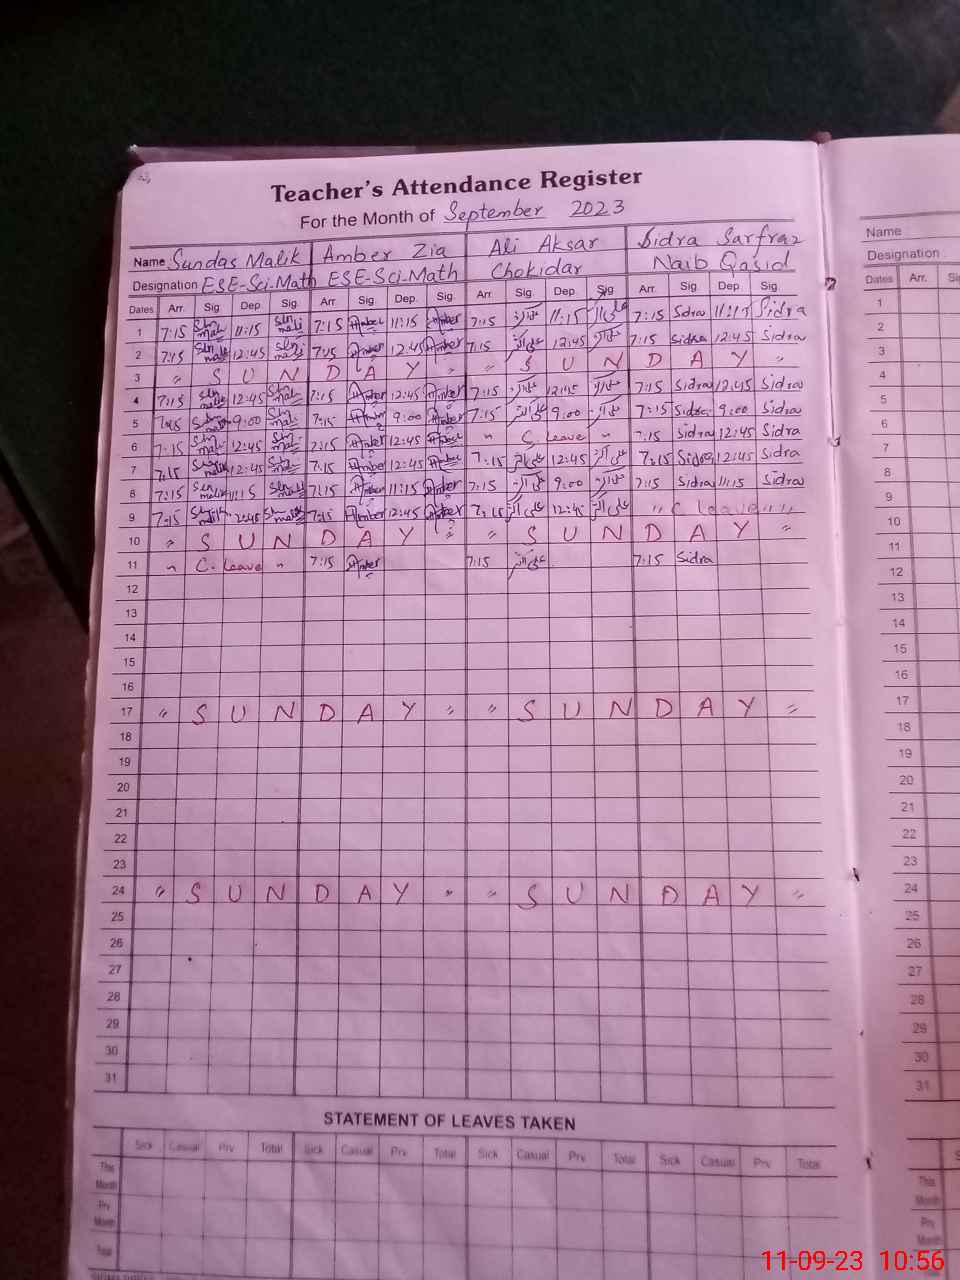 Teacher's Attendance Register
For the Month of September 2023
Name Sundas Malik Amber Zia Ali Aksar Sidra Sarfraz
Designation ESE-Sci-Math ESE-Sci-Math Chokidar Naib Qasid
Dates Arr. Sig. Dep. Sig. Arr. Sig. Dep. Sig. Arr. Sig. Dep. Sig. Arr. Sig. Dep. Sig.
1 7:15 11:15 7:15 Amber 11:15 Amber 7:15 11:15 7:15 Sidra 11:15 Sidra
2 7:15 12:45 7:15 Amber 12:45 Amber 7:15 12:45 7:15 Sidra 12:45 Sidra
3 " S U N D A Y " " S U N D A Y "
4 7:15 12:45 7:15 Amber 12:45 Amber 7:15 12:45 7:15 Sidra 12:45 Sidra
5 7:15 9:00 7:15 Amber 9:00 Amber 7:15 9:00 7:15 Sidra 9:00 Sidra
6 7:15 12:45 7:15 Amber 12:45 Amber " C. leave " 7:15 Sidra 12:45 Sidra
7 7:15 12:45 7:15 Amber 12:45 Amber 7:15 12:45 7:15 Sidra 12:45 Sidra
8 7:15 11:15 7:15 Amber 11:15 Amber 7:15 9:00 7:15 Sidra 11:15 Sidra
9 7:15 12:45 7:15 Amber 12:45 Amber 7:15 12:45 " C leave " "
10 " S U N D A Y " " S U N D A Y "
11 " C. leave " 7:15 Amber 7:15 7:15 Sidra
12
13
14
15
16
17 " S U N D A Y " " S U N D A Y "
18
19
20
21
22
23
24 " S U N D A Y " " S U N D A Y "
25
26
27
28
29
30
31
STATEMENT OF LEAVES TAKEN
Sick Casual Prv Total Sick Casual Prv Total Sick Casual Prv Total Sick Casual Prv Total
This Month
Prv Month
Total
Name
Designation
Dates Arr.
1
2
3
4
5
6
7
8
9
10
11
12
13
14
15
16
17
18
19
20
21
22
23
24
25
26
27
28
29
30
31
This Month
Prv Month
Total
11-09-23 10:56